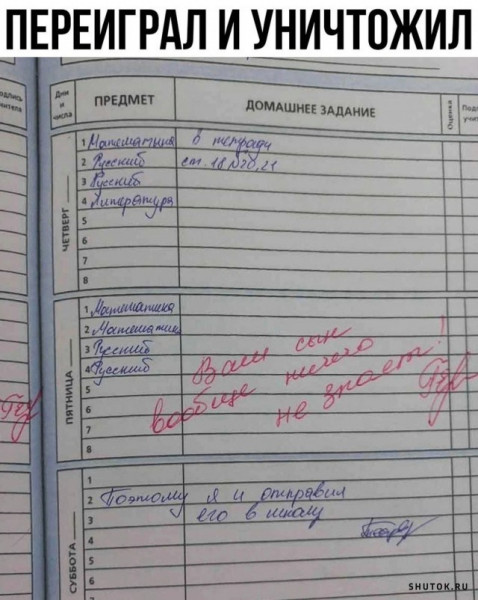 ПЕРЕИГРАЛ И УНИЧТОЖИЛ
Дни и числа
ПРЕДМЕТ
ДОМАШНЕЕ ЗАДАНИЕ
Оценка
ЧЕТВЕРГ
1 Математика в тетради
2 Русский ст. 18 №20,21
3 Русский
4 Литература
5
6
7
8
ПЯТНИЦА
1 Математика
2 Математика
3 Русский
4 Русский
5
6
7
8
Ваш сын
вообще ничего
не знает!
СУББОТА
1
2 Поэтому я и отправил
3 его в школу
4
5
6
SHUTOK.RU